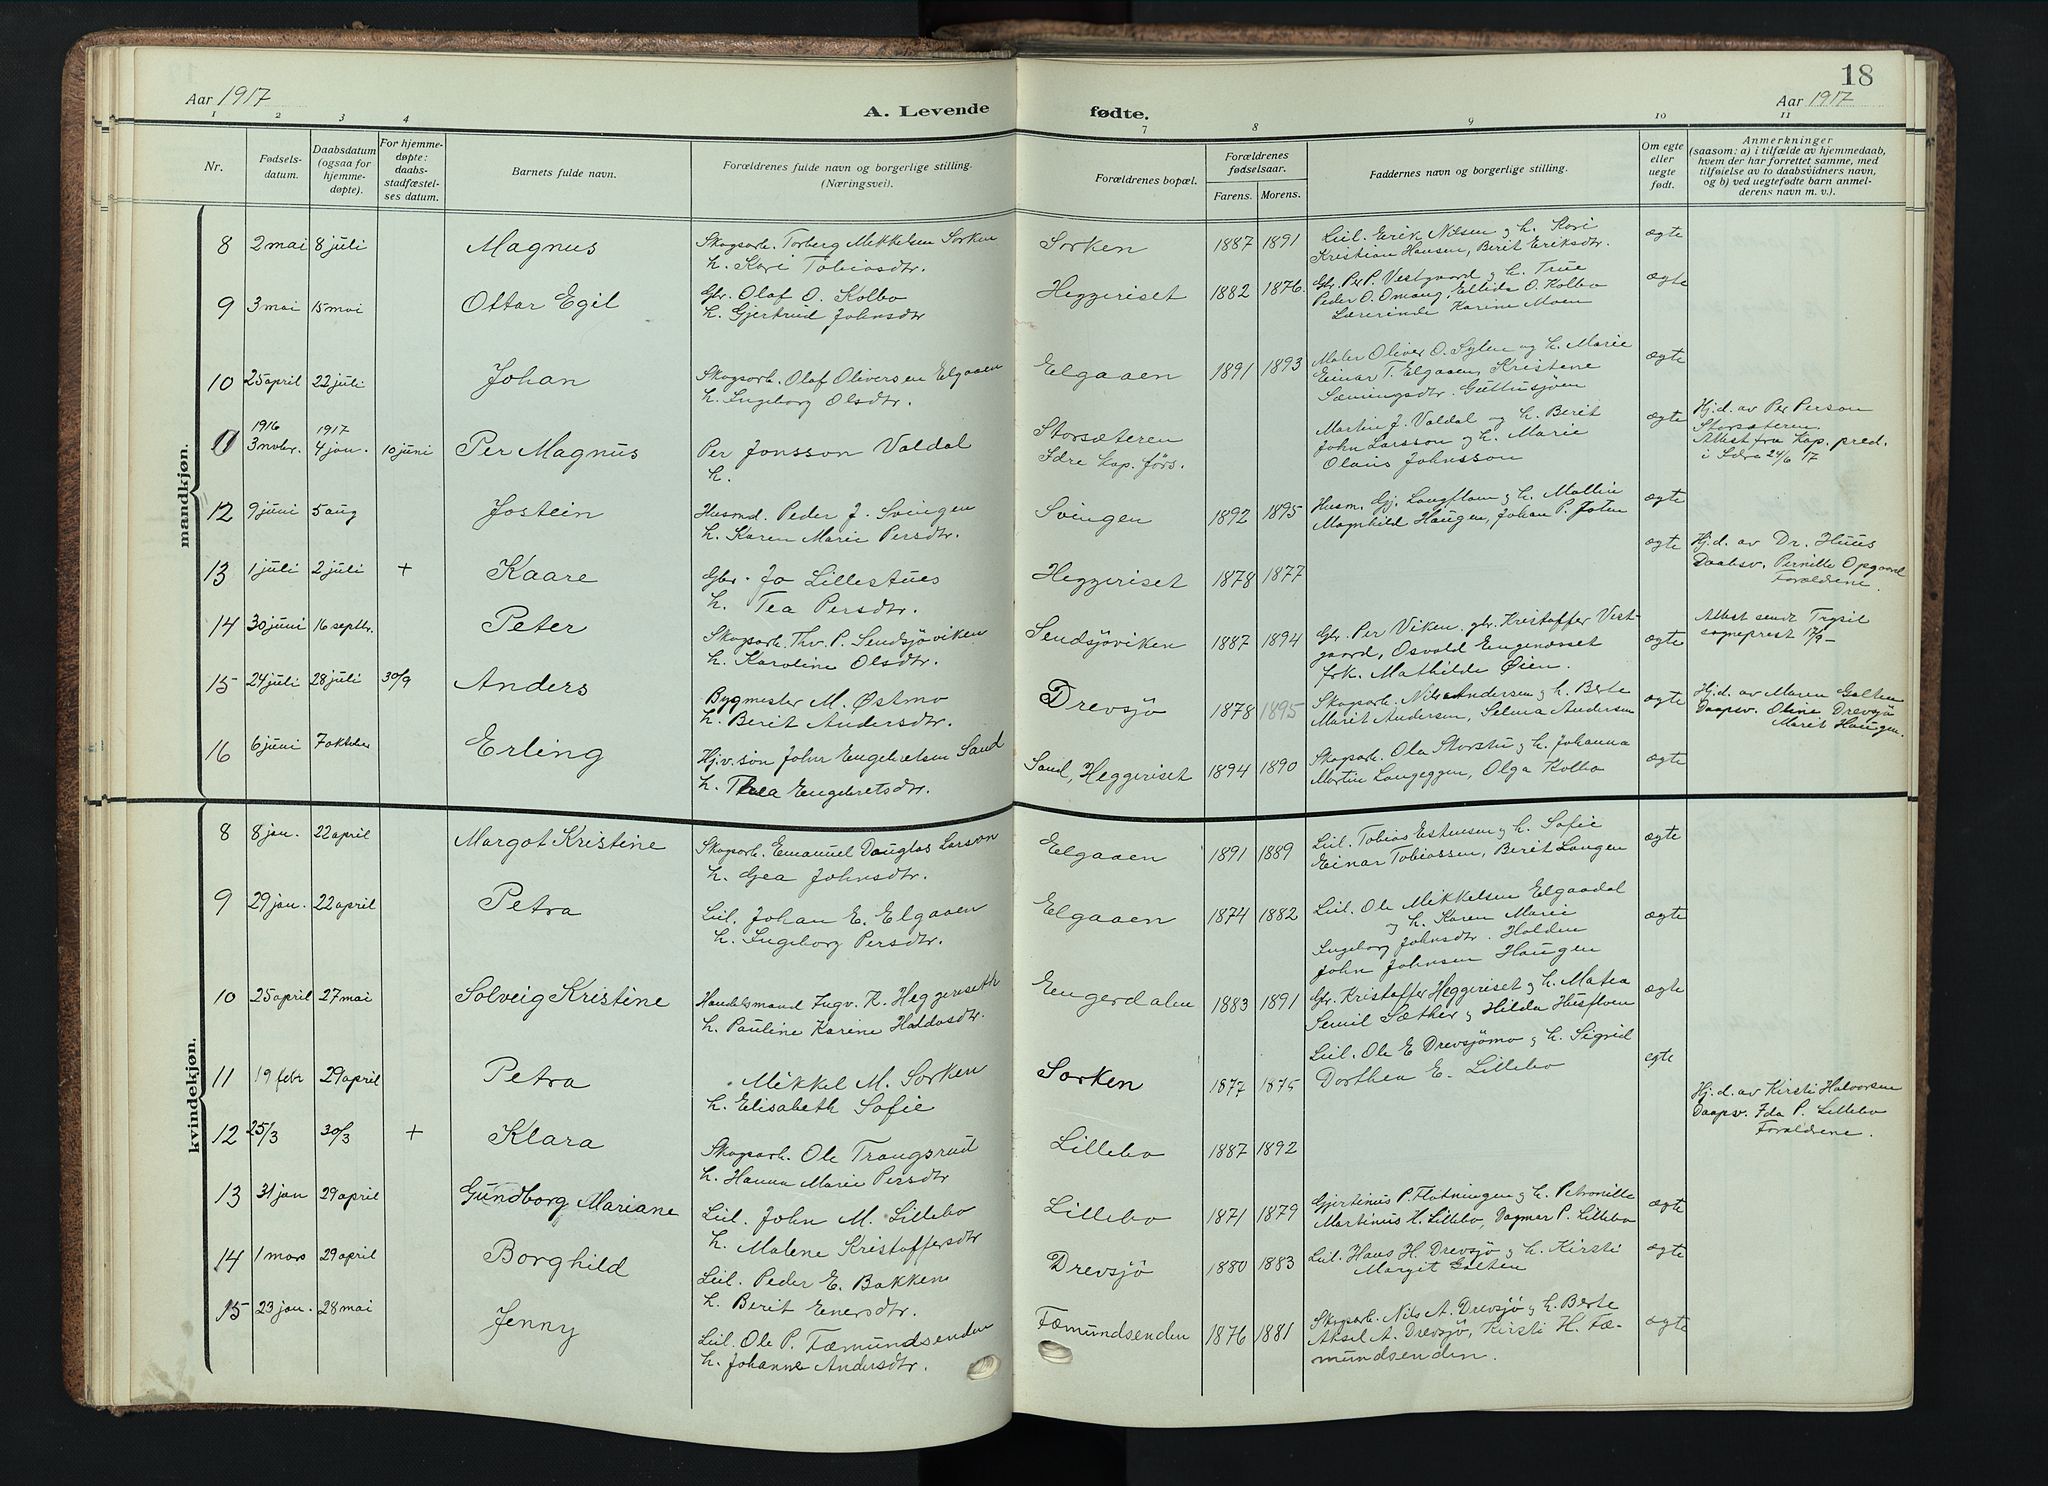 18
Aar 1917
A. Levende
fødte.
Aar 1917
1 2 3 4 7 8 9 10 11
Nr.
Fødsels-
datum.
Daabsdatum
(ogsaa for
hjemme-
døpte).
For hjemme-
døpte:
daabs-
stadfæstel-
ses datum.
Barnets fulde navn.
Forældrenes fulde navn og borgerlige stilling.
(Næringsvei).
Forældrenes bopæl.
Forældrenes
fødselsaar.
Farens. Morens.
Faddernes navn og borgerlige stilling.
Om egte
eller
uegte
født.
Anmerkninger
(saasom: a) i tilfælde av hjemmedaab,
hvem der har forrettet samme, med
tilføielse av to daabsvidners navn,
og b) ved uegtefødte barn anmel-
derens navn m. v.).
mandkjøn.
8 2 mai 8 juli Magnus
Skogsarb. Torberg Mikkelsen Sorken
h. Kari Tobiasdtr.
Sorken 1887 1891
Leil. Erik Nilsen og h. Kari
Kristian Hansen, Berit Eriksdtr.
ægte
9 3 mai 15 mai Ottar Egil
Gbr. Olaf O. Kolbo
h. Gjertrud Johnsdtr
Heggeriset 1882 1876.
Gbr. Per P. Vestgaard og h. True
Peder O. Omang, Ellida O. Kolbo
Lærerinde Karine Moen
ægte
10 25 april 22 juli Johan
Skogsarb. Olaf Oliversen Elgaaen
h. Ingeborg Olsdtr.
Elgaaen 1891 1893
Maler Oliver O. Sylen og h. Marie
Einar T. Elgaaen, Kristene
Sæmingsdtr. Guttusjøen
ægte
1916 1917
11 3 novbr. 4 jan. 10 juni Per Magnus
Per Jonsson Valdal
h.
Storsæteren
Idre kap. førs.
Martin J. Valdal og h. Berit
John Larsson og h. Marie
Olaus Johnsson
ægte
Hj.d. av Per Person
Storsæteren.
Attest fra kap. pred.
i Idre 24/6 17
12 9 juni 5 aug Jostein
Husmd. Peder J. Svingen
h. Karen Marie Persdtr.
Svingen 1892 1895
Husm. Gj. Langflom og h. Mallin
Magnhild Haugen, Johan P. Joten
ægte
13 1 juli 2 juli + Kaare
Gbr. Jo Lillestues
h. Tea Persdtr.
Heggeriset 1878 1877
ægte
Hj.d. av Dr. Huus
Daabsv. Pernille Opgaard
Forældrene.
14 30 juni 16 septbr. Peter
Skogsarb. Thv. P. Sendsjøviken
h. Karoline Olsdtr.
Sendsjøviken 1887 1894
Gbr. Per Viken, gbr. Kristoffer Vest-
gaard, Osvald Engenæsset
frk. Mathilde Øien.
ægte
Attest sendt Trysil
sogneprest 17/9 –
15 24 juli 28 juli 30/9 Anders
Bygmester M. Østmo
h. Berit Andersdtr.
Drevsjø 1878 1895
Skogsarb. Nils Andersen og h. Berte
Marit Andersen, Selma Andersen
ægte
Hj.d. av Maren Galten
Daapsv. Oline Drevsjø
Marit Haugen.
16 6 juni 7 oktober Erling
Hj.v. søn John Engebretsen Sand
h. Thea Engebretsdtr.
Sand, Heggeriset 1894 1890
Skogsarb. Ola Storstu og h. Johanna
Martin Langeggen, Olga Kolbo
ægte
kvindekjøn.
8 8 jan. 22 april Margot Kristine
Skogsarb. Emanuel Douglas Larsson
h. Gea Johnsdtr.
Elgaaen 1891 1889
Leil. Tobias Estensen og h. Sofie
Einar Tobiassen, Berit Langen
ægte
9 29 jan. 22 april Petra
Leil. Johan E. Elgaaen
h. Ingeborg Persdtr.
Elgaaen 1874 1882
Leil. Ole Mikkelsen Elgaadal
og h. Karen Marie
Ingeborg Johnsdtr. Holden
John Johnsen Haugen
ægte
10 25 april 27 mai Solveig Kristine
Handelsmand Ingv. K. Heggeriseth
h. Pauline Karine Haldosdtr.
Engerdalen 1883 1891
Gbr. Kristoffer Heggeriset og h. Matea
Semil Sæther og Hilda Husfloen
ægte
11 19 febr 29 april Petra
Mikkel M. Sorken
h. Elisabeth Sofie
Sorken 1877 1875
Leil. Ole E Drevsjømo og h. Sigrid
Dorthea E. Lillebo
egte
12 25/3 30/3 + Klara
Skogsarb. Ole Trangsrud
h. Hanna Marie Persdtr
Lillebo 1887 1892
Hj.d. av Kirsti Halvorsen
Daapsv. Ida P. Lillebo
Forældrene.
13 31 jan 29 april Gundborg Mariane
Leil. John M. Lillebo
h. Malene Kristoffersdtr
Lillebo 1871 1879
Gjertinus P. Flotningen og h. Petronille
Martinus H. Lillebo, Dagmar P. Lillebo
ægte
14 1 mars 29 april Borghild
Leil. Peder E. Bakken
h. Berit Enersdtr.
Drevsjö 1880 1883
Leil. Hans H. Drevsjø og h. Kirsti
Margit Galten
ægte
15 23 jan. 28 mai Jenny
Leil. Ole P. Fæmundsenden
h. Johanne Andersdtr.
Fæmundsenden 1876 1881
Skogsarb. Nils A. Drevsjø og h. Berte
Aksel A. Drevsjø, Kirsti H. Fæ-
mundsenden.
ægte